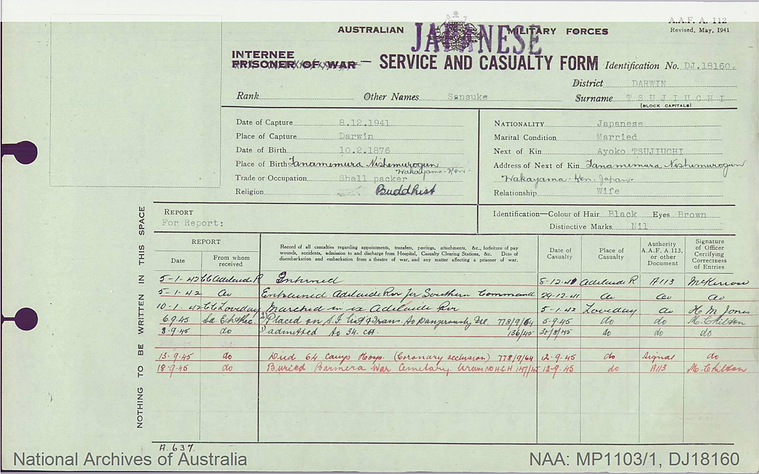 A.A.F. A. 112
Revised, May, 1941
AUSTRALIAN MILITARY FORCES
JAPANESE
INTERNEE
PRISONER OF WAR — SERVICE AND CASUALTY FORM Identification No. DJ.18160.
District DARWIN
Rank Other Names Sansuke Surname TSUJIUCHI
(BLOCK CAPITALS)
Date of Capture 8.12.1941
Place of Capture Darwin
Date of Birth 10.2.1876
Place of Birth Tanamemura Nishimurogun
Wakayama-Ken
Trade or Occupation Shell packer
Religion Buddhist
NATIONALITY Japanese
Marital Condition Married
Next of Kin Ayoko TSUJIUCHI
Address of Next of Kin Tanamemura Nishimurogun
Wakayama-Ken, Japan
Relationship Wife
REPORT
For Report:
Identification—Colour of Hair Black Eyes Brown
Distinctive Marks Nil
NOTHING TO BE WRITTEN IN THIS SPACE
REPORT
Date
From whom received
Record of all casualties regarding appointments, transfers, postings, attachments, &c., forfeiture of pay, wounds, accidents, admission to and discharge from Hospital, Casualty Clearing Stations, &c. Date of disembarkation and embarkation from a theatre of war, and any matter affecting a prisoner of war.
Date of Casualty
Place of Casualty
Authority A.A.F. A 113, or other Document
Signature of Officer Certifying Correctness of Entries
5-1-42 Adelaide R Interned 5-12-41 Adelaide R A113
5-1-42 do Entrained Adelaide Riv for Southern Command 29-12-41 do do do
10-1-42 Loveday Marched in ex Adelaide Riv 5-1-42 Loveday do H M Jones
6-9-45 Placed on Dangerously Ill 778/9/64 5-9-45 do do
8-9-45 do admitted to do do
13-9-45 do Died 64 Camp Hosp. (Coronary occlusion) 778/9/64 12-9-45 do Signal do
18-9-45 do Buried Barmera War Cemetery 13-9-45 do A113
A.637
National Archives of Australia
NAA: MP1103/1, DJ18160